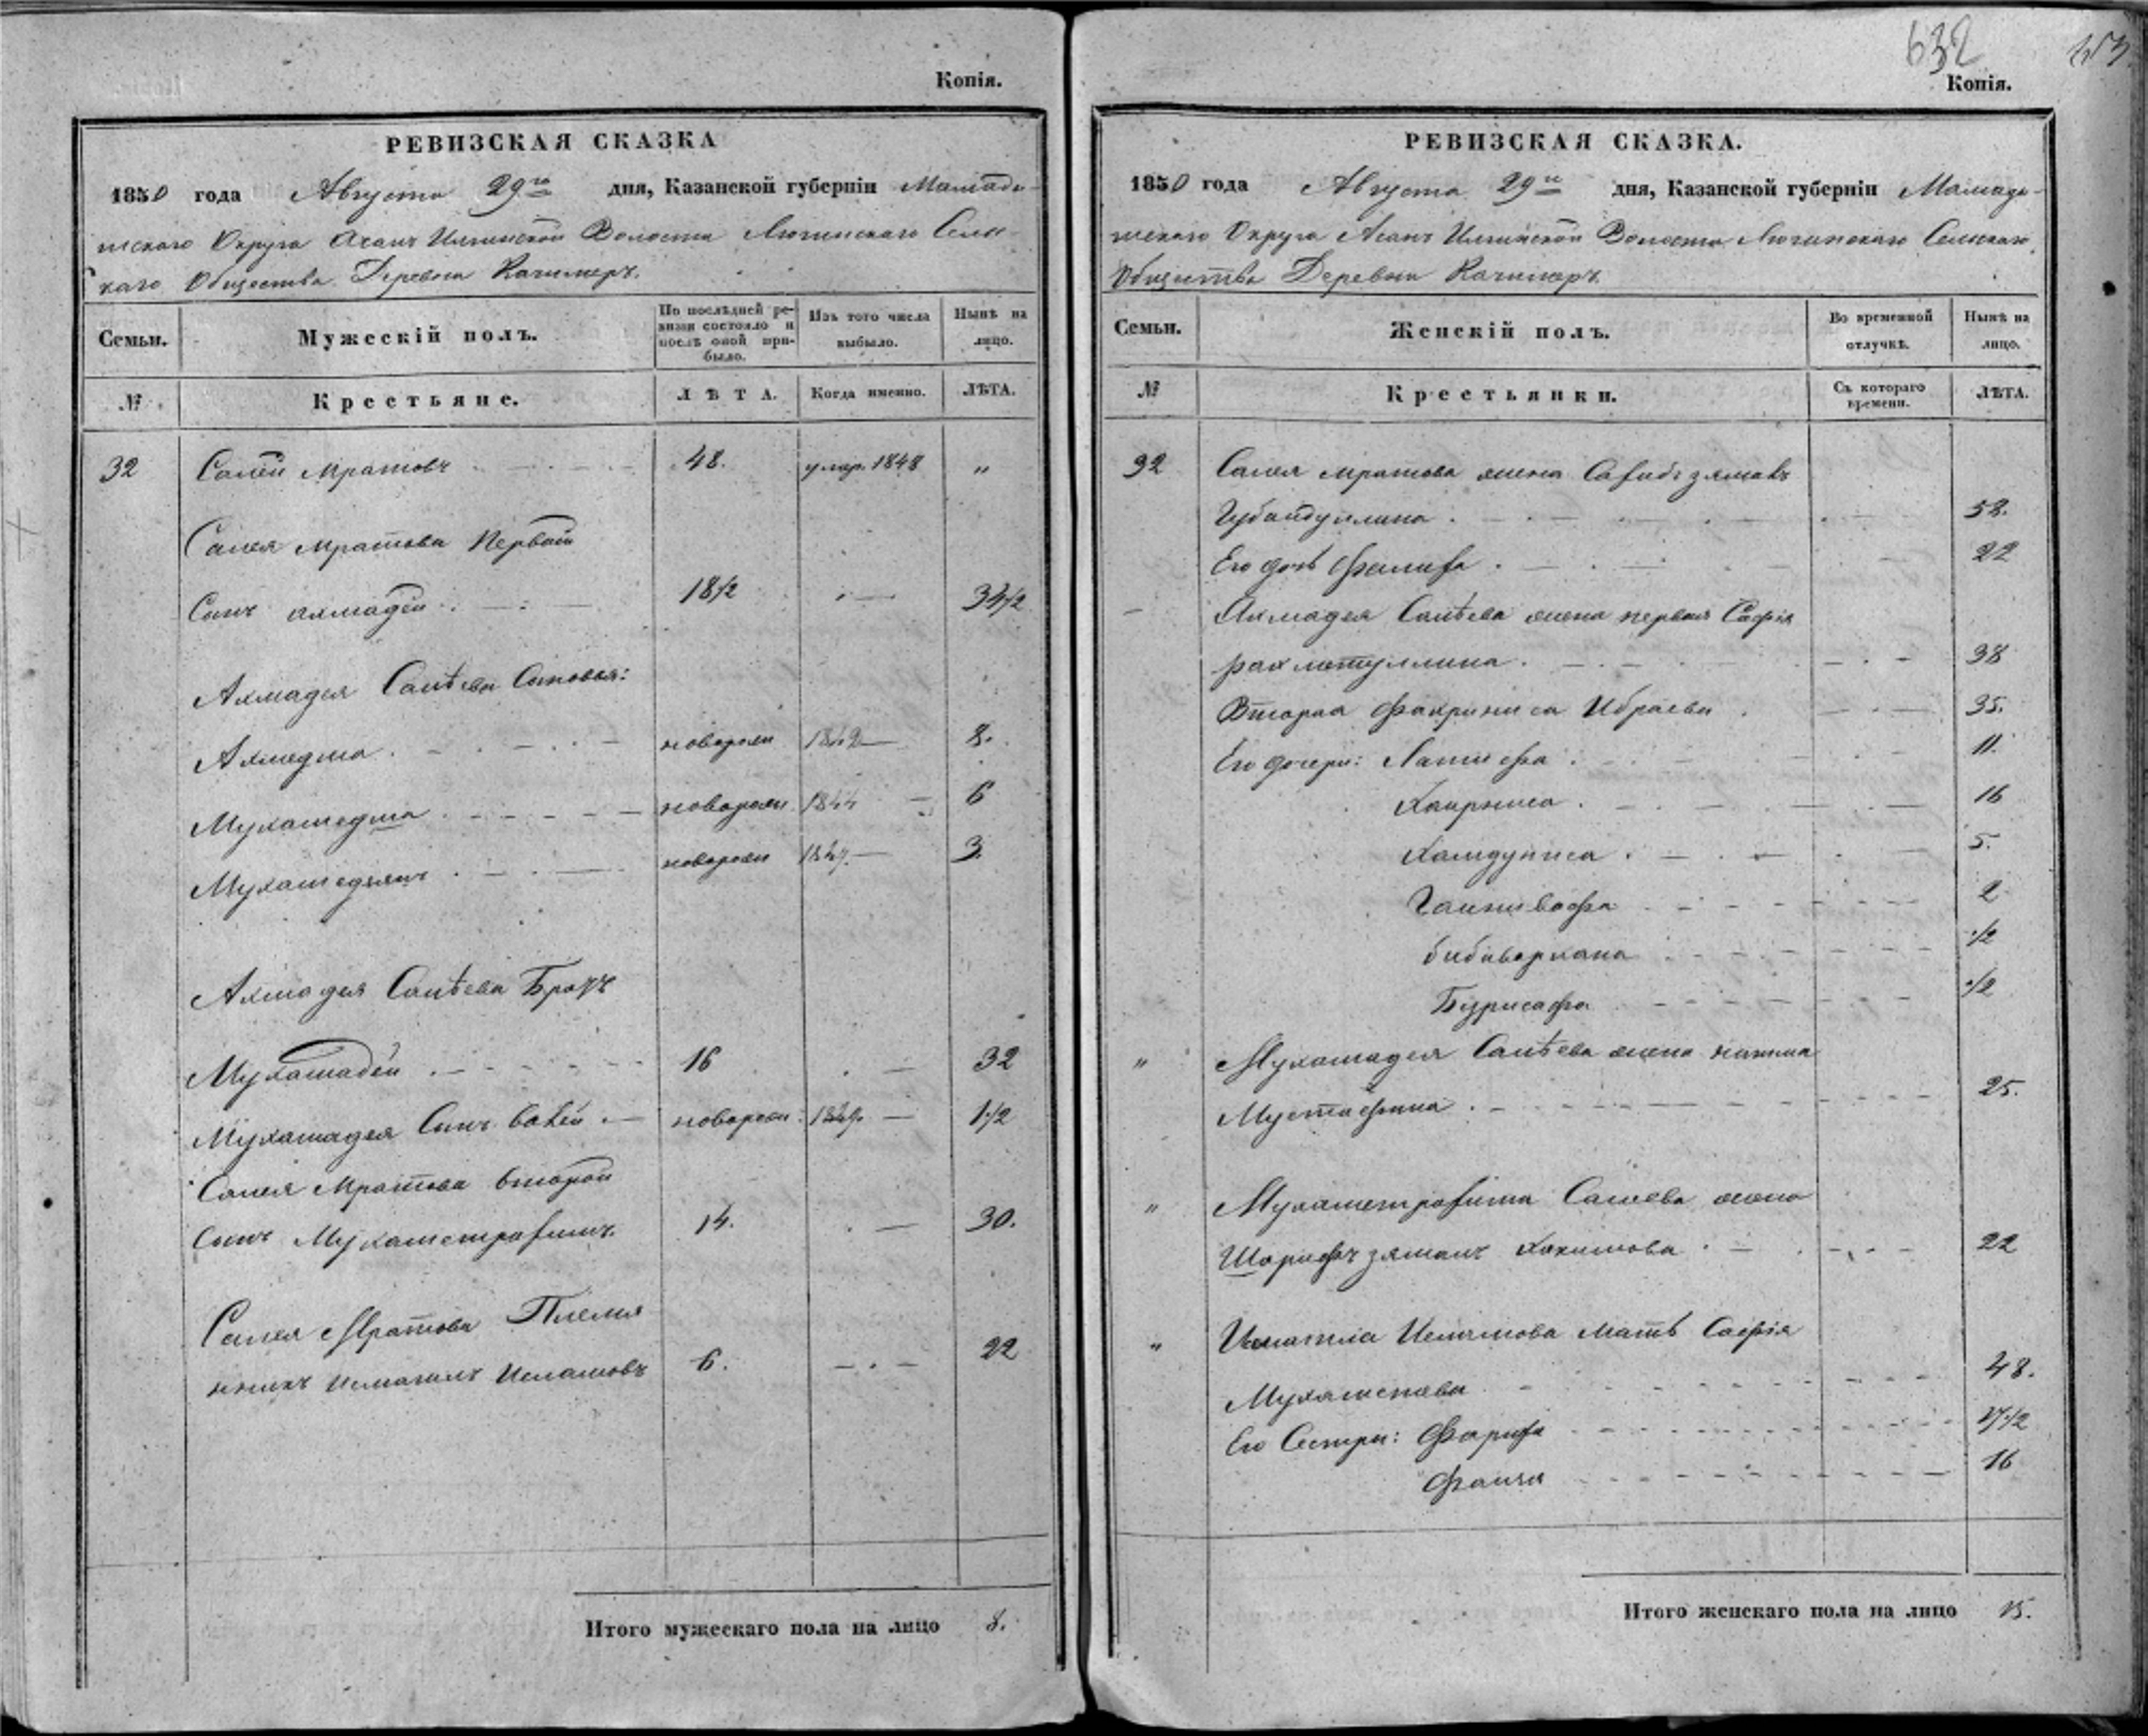 Копія.
РЕВИЗСКАЯ СКАЗКА
1850 года Августа 29го дня, Казанской губерніи Мамады-
шскаго Округа Асанъ Илгинской Волости Лючинскаго Сель-
скаго Общества Деревни Качимеръ.
Семьи. Мужескій полъ. По послѣдней ре-
визіи состояло и
послѣ оной при-
было. Изъ того числа
выбыло. Нынѣ на
лицо.
№ Крестьяне. ЛѢТА. Когда именно. ЛѢТА.
32 Салей Мратовъ 48. умер. 1848 "
Салея Мратова Первый
Сынъ Ахмадей 18 1/2 34 1/2
Ахмадея Салѣева Сыновья:
Ахмедша новорож 1842 8.
Мухамедша новорож 1844 6
Мухамедзянъ новорож 1847 3.
Ахмадея Салѣева Братъ
Мухамадей 16 32
Мухамадея Сынъ новорож 1849 1 1/2
Салея Мратова второй
Сынъ Мухаметрафикъ 14. 30.
Салея Мратова Племя
нникъ Исмагилъ Исламовъ 6. 22
Итого мужескаго пола на лицо 8.
632
Копія.
РЕВИЗСКАЯ СКАЗКА.
1850 года Августа 29го дня, Казанской губерніи Мамады-
шскаго Округа Асанъ Илгинской Волости Лючинскаго Сельскаго
Общества Деревни Качимеръ.
Семьи. Женскій полъ. Во временной
отлучкѣ. Нынѣ на
лицо.
№ Крестьянки. Съ котораго
времени. ЛѢТА.
32 Салея Мратова жена
Губайдуллина 58.
Его дочь 22
Ахмадея Салѣева жена первая Сафія
Рахметуллина 38
Вторая Фахриниса Ибраева 35.
Его дочери: Латифа 11.
Хаирниса 16
Хамдуниса 5.
2
1/2
1/2
" Мухамадея Салѣева жена
Мустафина 25.
" Салеева жена
Шарифъ зяманъ Хакимова 22
" Исмагила Исламова мать Сафія
Мухаметева 48.
Его Сестры: 17 1/2
16
Итого женскаго пола на лицо 15.